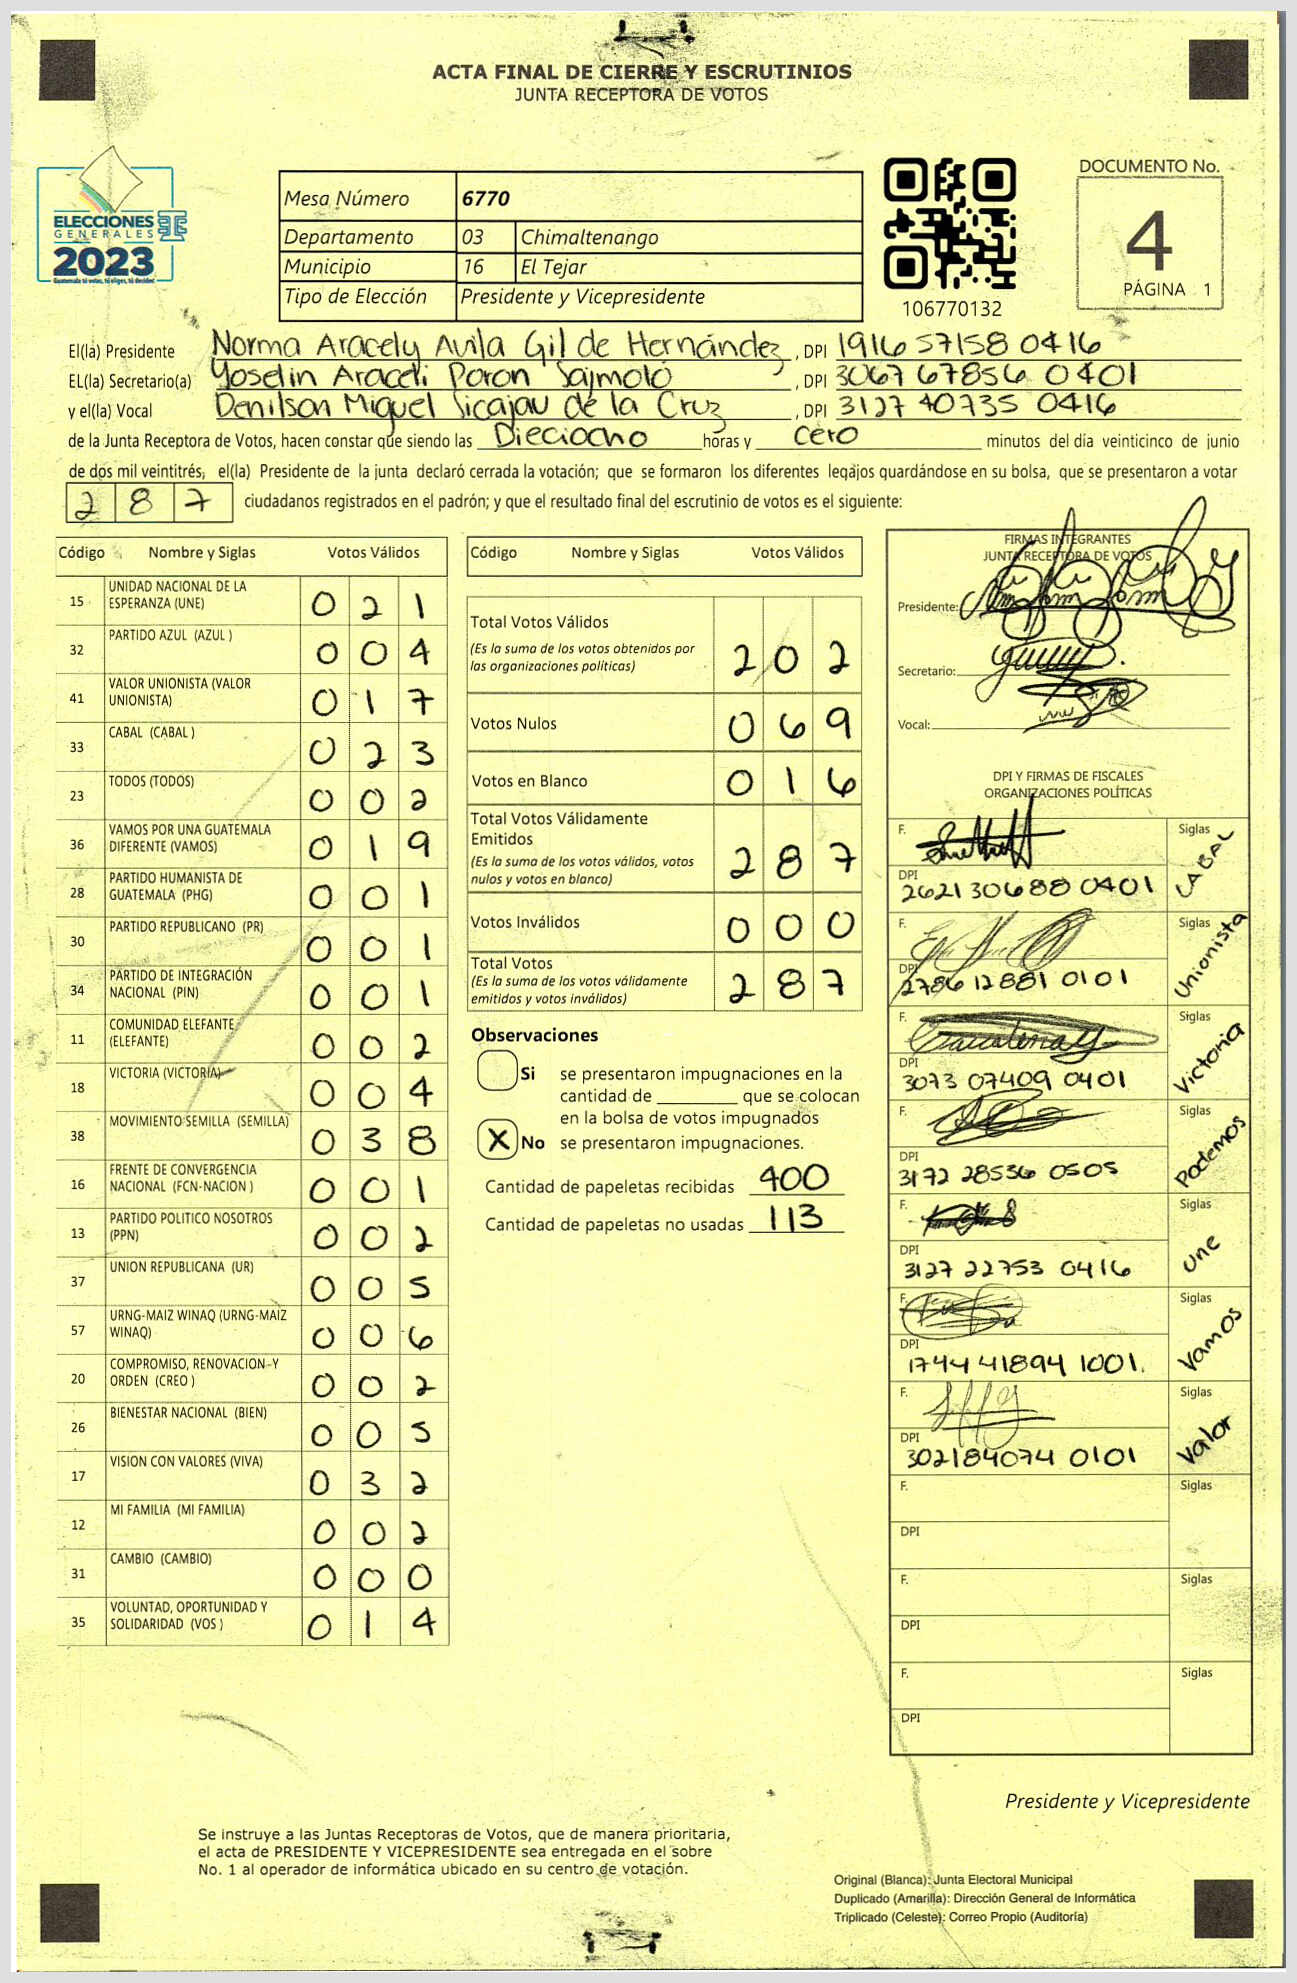 ACTA FINAL DE CIERRE Y ESCRUTINIOS
JUNTA RECEPTORA DE VOTOS
ELECCIONES
GENERALES
2023
Guatemala tú votas, tú eliges, tú decides!
Mesa Número 6770
Departamento 03 Chimaltenango
Municipio 16 El Tejar
Tipo de Elección Presidente y Vicepresidente
106770132
DOCUMENTO No.
4
PÁGINA 1
El(la) Presidente Norma Aracely Avila Gil de Hernández, DPI 1916 57158 0416
EL(la) Secretario(a) Yoselin Araceli Poron Sajmoló, DPI 3067 67856 0401
y el(la) Vocal Denilson Miguel Sicajau de la Cruz, DPI 3127 40735 0416
de la Junta Receptora de Votos, hacen constar que siendo las Dieciocho horas y cero minutos del día veinticinco de junio
de dos mil veintitrés, el(la) Presidente de la junta declaró cerrada la votación; que se formaron los diferentes legajos guardándose en su bolsa, que se presentaron a votar
287 ciudadanos registrados en el padrón; y que el resultado final del escrutinio de votos es el siguiente:
Código Nombre y Siglas Votos Válidos
15 UNIDAD NACIONAL DE LA ESPERANZA (UNE) 021
32 PARTIDO AZUL (AZUL ) 004
41 VALOR UNIONISTA (VALOR UNIONISTA) 017
33 CABAL (CABAL ) 023
23 TODOS (TODOS) 002
36 VAMOS POR UNA GUATEMALA DIFERENTE (VAMOS) 019
28 PARTIDO HUMANISTA DE GUATEMALA (PHG) 001
30 PARTIDO REPUBLICANO (PR) 001
34 PARTIDO DE INTEGRACIÓN NACIONAL (PIN) 001
11 COMUNIDAD ELEFANTE (ELEFANTE) 002
18 VICTORIA (VICTORIA) 004
38 MOVIMIENTO SEMILLA (SEMILLA) 038
16 FRENTE DE CONVERGENCIA NACIONAL (FCN-NACION ) 001
13 PARTIDO POLITICO NOSOTROS (PPN) 002
37 UNION REPUBLICANA (UR) 005
57 URNG-MAIZ WINAQ (URNG-MAIZ WINAQ) 006
20 COMPROMISO, RENOVACION Y ORDEN (CREO ) 002
26 BIENESTAR NACIONAL (BIEN) 005
17 VISION CON VALORES (VIVA) 032
12 MI FAMILIA (MI FAMILIA) 002
31 CAMBIO (CAMBIO) 000
35 VOLUNTAD, OPORTUNIDAD Y SOLIDARIDAD (VOS ) 014
Código Nombre y Siglas Votos Válidos
Total Votos Válidos 202
(Es la suma de los votos obtenidos por
las organizaciones políticas)
Votos Nulos 069
Votos en Blanco 016
Total Votos Válidamente
Emitidos 287
(Es la suma de los votos válidos, votos
nulos y votos en blanco)
Votos Inválidos 000
Total Votos 287
(Es la suma de los votos válidamente
emitidos y votos inválidos)
Observaciones
Si se presentaron impugnaciones en la
cantidad de ______ que se colocan
en la bolsa de votos impugnados
X No se presentaron impugnaciones.
Cantidad de papeletas recibidas 400
Cantidad de papeletas no usadas 113
FIRMAS INTEGRANTES
JUNTA RECEPTORA DE VOTOS
Presidente:
Secretario:
Vocal:
DPI Y FIRMAS DE FISCALES
ORGANIZACIONES POLÍTICAS
F. Siglas CABAL
DPI 2621 30688 0401
F. Siglas Unionista
DPI 2786 12881 0101
F. Siglas Victoria
DPI 3073 07409 0401
F. Siglas Podemos
DPI 3172 28536 0505
F. Siglas Une
DPI 3127 22753 0416
F. Siglas Vamos
DPI 1744 41894 1001.
F. Siglas Valor
DPI 302184074 0101
F. Siglas
DPI
F. Siglas
DPI
F. Siglas
DPI
Presidente y Vicepresidente
Se instruye a las Juntas Receptoras de Votos, que de manera prioritaria,
el acta de PRESIDENTE Y VICEPRESIDENTE sea entregada en el sobre
No. 1 al operador de informática ubicado en su centro de votación.
Original (Blanca): Junta Electoral Municipal
Duplicado (Amarilla): Dirección General de Informática
Triplicado (Celeste): Correo Propio (Auditoría)